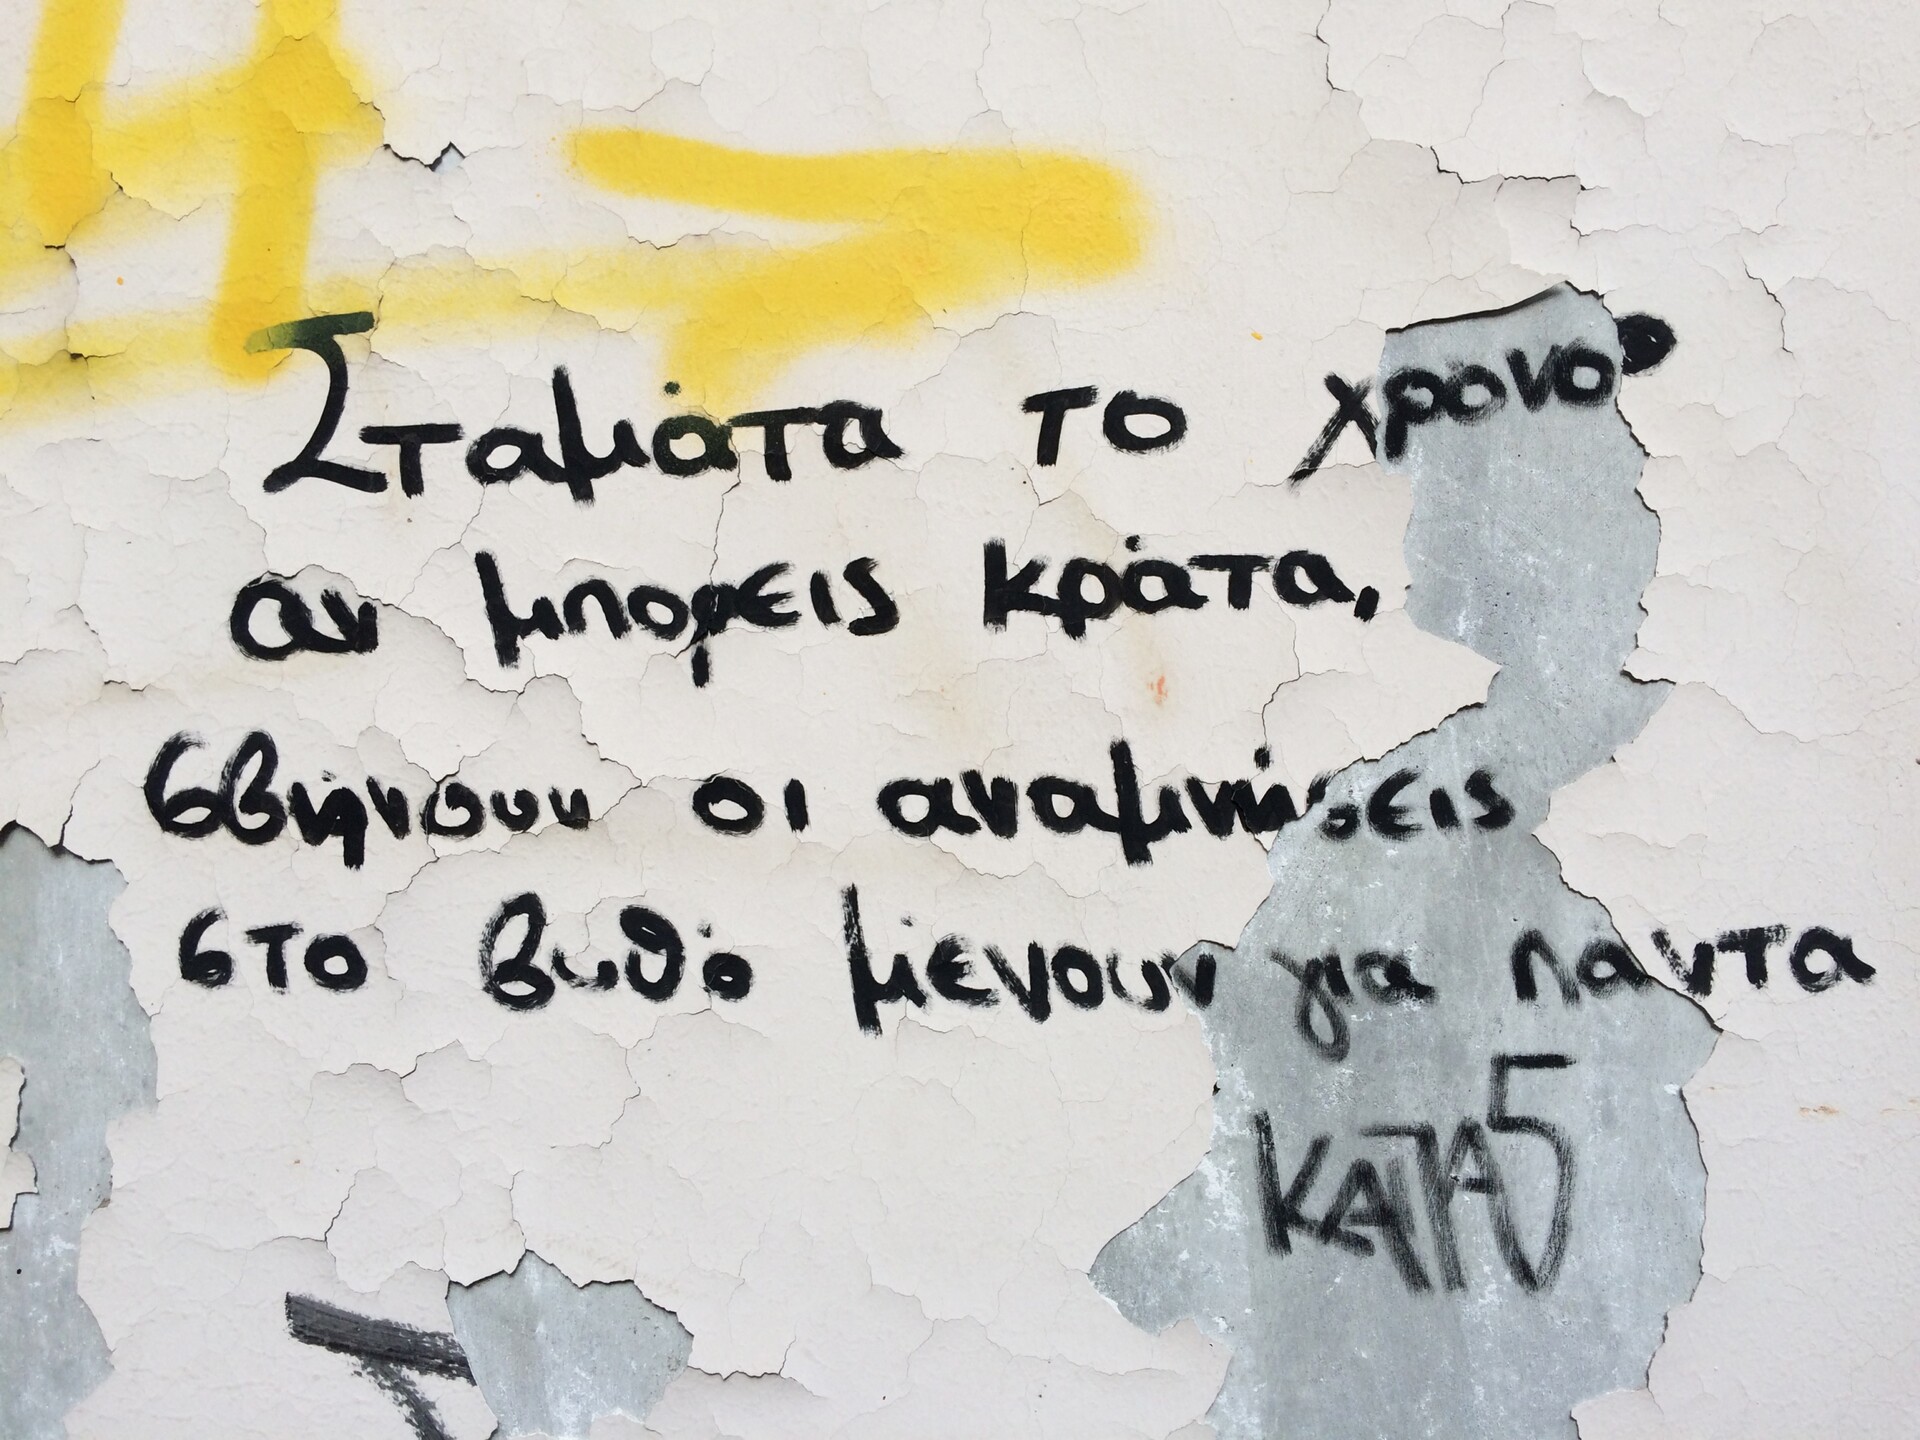 Σταμάτα το χρόνο
αν μπορεις κράτα,
σβήνουν οι αναμνήσεις
στο βυθό μένουν για πάντα
ΚΑΠΑ5